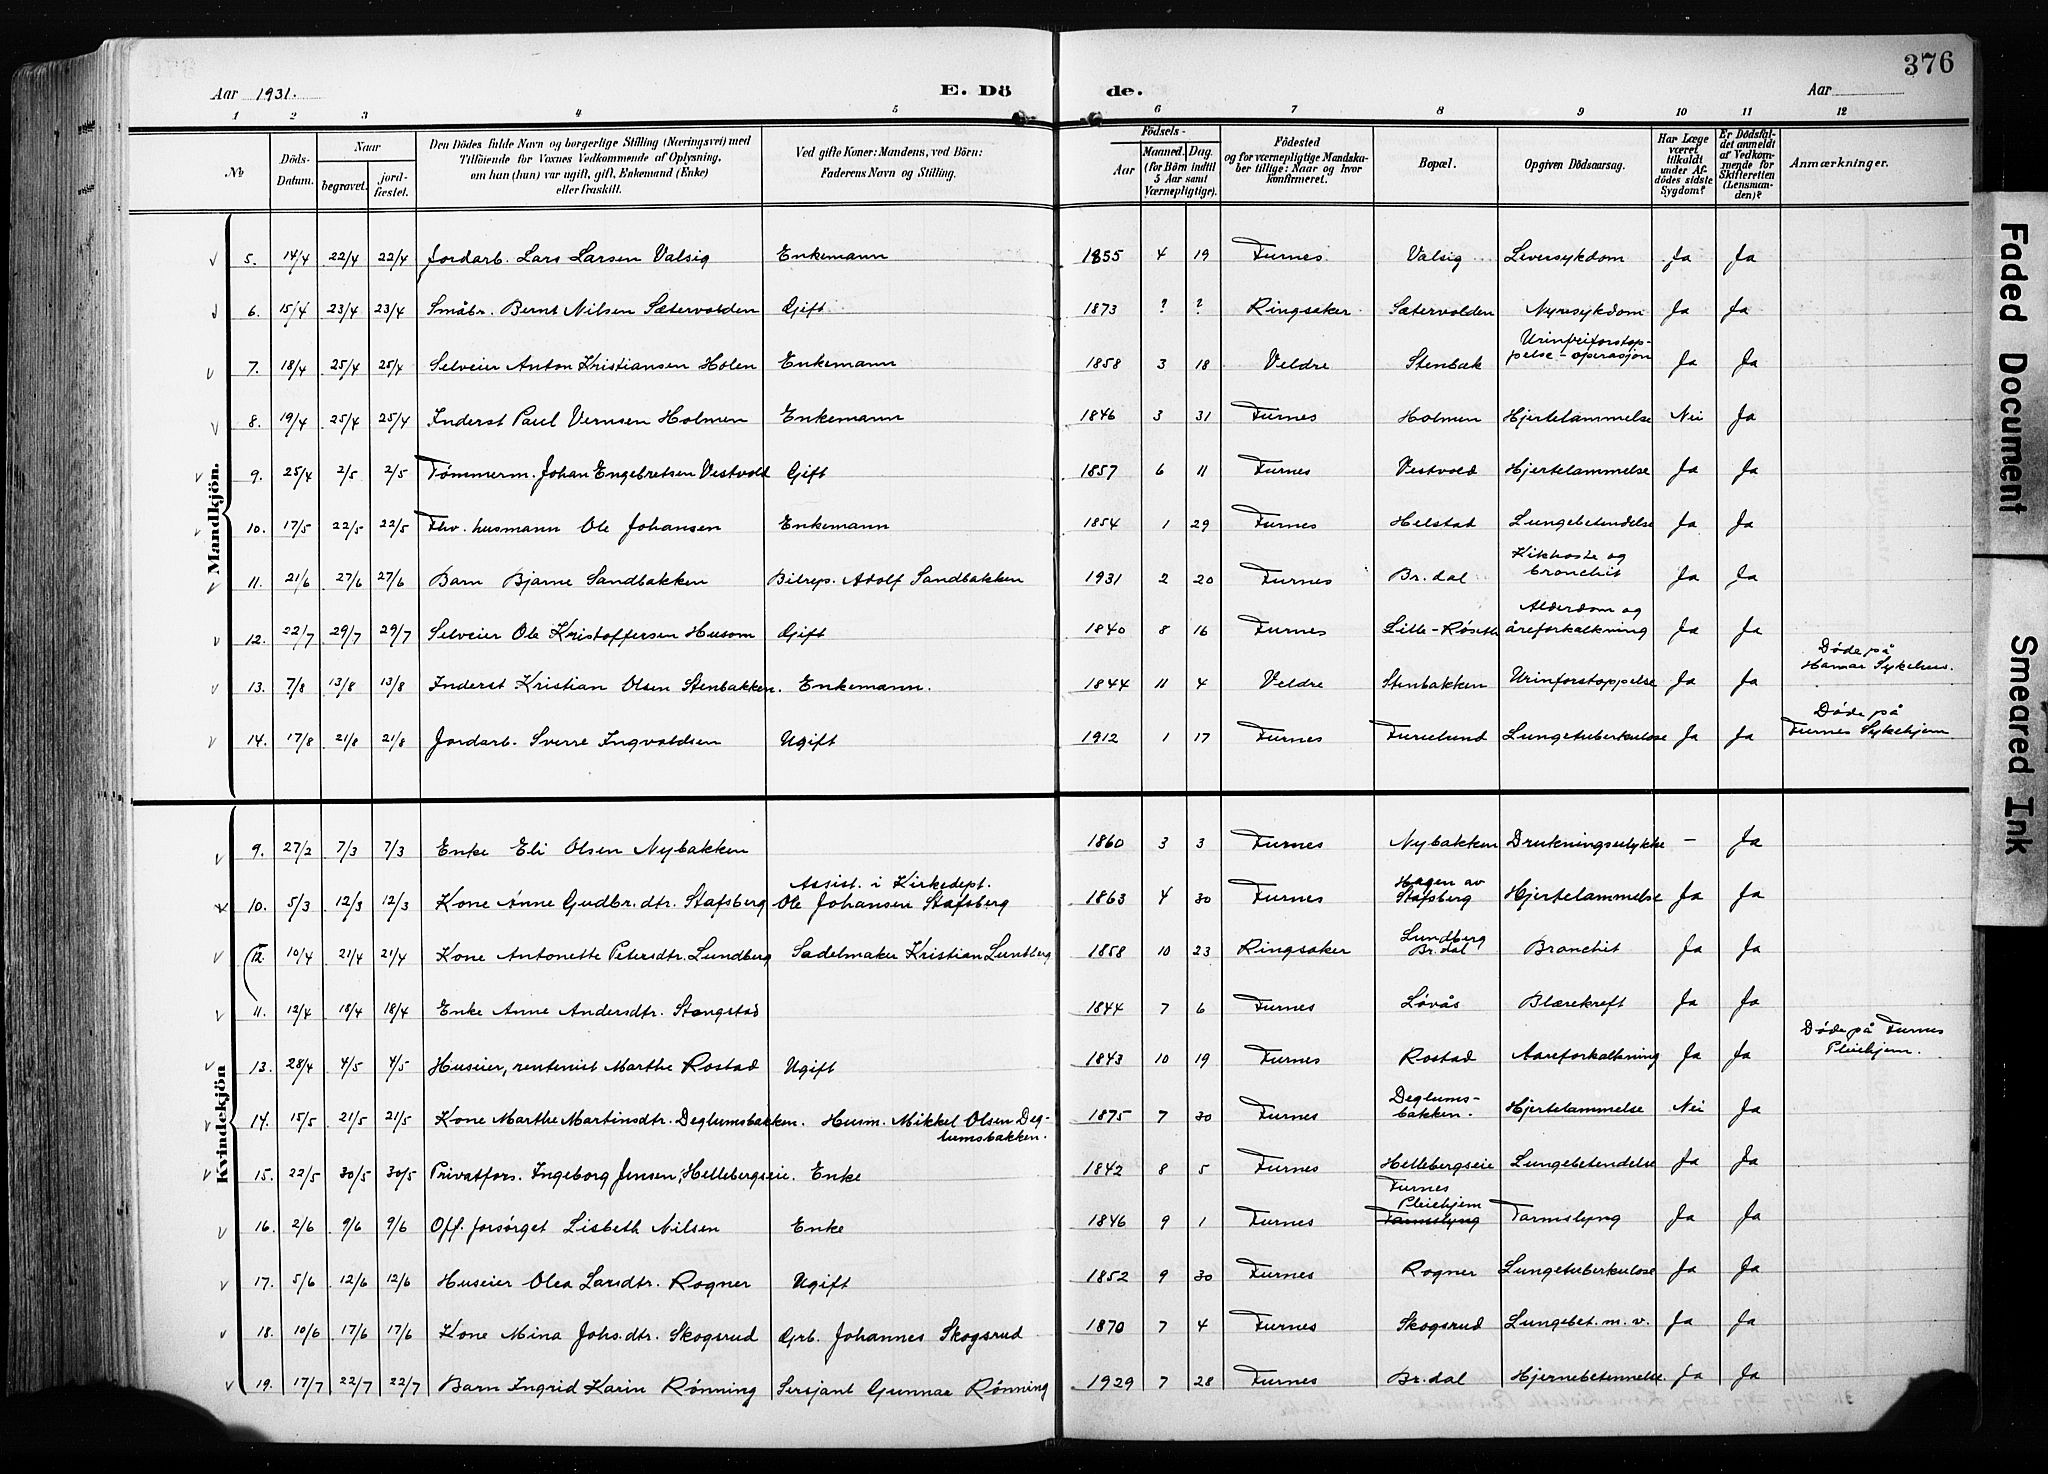 376
Aar 1931.
E. Dö
de.
Aar
1 2 3 4 5 6 7 8 9 10 11 12
No
Döds-Datum.
Naar
begravet.
jord-fæstet.
Den Dödes fulde Navn og borgerlige Stilling (Næringsvei) med
Tilföiende for Voxnes Vedkommende af Oplysning,
om han (hun) var ugift, gift, Enkemand (Enke)
eller fraskilt.
Ved gifte Koner: Mandens, ved Börn:
Faderens Navn og Stilling.
Födsels-
Aar
Maaned. Dag.
(for Börn indtil 5 Aar samt Værnepligtige).
Födested
og for værnepligtige Mandska-
ber tillige: Naar og hvor
konfirmeret.
Bopæl.
Opgiven Dödsaarsag.
Har Læge været tilkaldt under Af-dödes sidste Sygdom?
Er Dödsfal-det anmeldt af Vedkom-mende for Skifteretten (Lensman-den)?
Anmærkninger.
Mandkjön.
5. 14/4 22/4 22/4 Jordarb. Lars Larsen Valsig Enkemann 1855 4 19 Furnes Valsig Leversykdom Ja Ja
6. 15/4 23/4 23/4 Småbr. Bernt Nilsen Sætervolden Gift 1873 ? ? Ringsaker Sætervolden Nyresykdom Ja Ja
7. 18/4 25/4 25/4 Selveier Anton Kristiansen Holen Enkemann 1858 3 18 Veldre Stenbak Urinveiforstop-
pelse - operasjon Ja Ja
8. 19/4 25/4 25/4 Inderst Paul Vernsen Holmen Enkemann 1846 3 31 Furnes Holmen Hjertelammelse Nei Ja
9. 25/4 2/5 2/5 Tømmerm. Johan Engebretsen Vestvold Gift 1857 6 11 Furnes Vestvold Hjertelammelse Ja Ja
10. 17/5 22/5 22/5 Fhv. husmann Ole Johansen Enkemann 1854 1 29 Furnes Helstad Lungebetendelse Ja Ja
11. 21/6 27/6 27/6 Barn Bjarne Sandbakken Bilrep. Adolf Sandbakken 1931 2 20 Furnes Br.dal Kikhoste og
bronchit Ja Ja
12. 22/7 29/7 29/7 Selveier Ole Kristoffersen Husom Gift 1840 8 16 Furnes Lille-Røseth Alderdom og
åreforkalkning Ja Ja
13. 7/8 13/8 13/8 Inderst Kristian Olsen Stenbakken. Enkemann. 1844 11 4 Veldre Stenbakken Urinforstoppelse Ja Ja Døde på
Hamar Sykehus.
14. 17/8 21/8 21/8 Jordarb. Sverre Ingvaldsen Ugift 1912 1 17 Furnes Furulund Lungetuberkulose Ja Ja Døde på
Furnes Sykehjem
Kvindekjön
9. 27/2 7/3 7/3 Enke Eli Olsen Nybakken 1860 3 3 Furnes Nybakken Drukningsulykke – Ja
10. 5/3 12/3 12/3 Kone Anne Gudbr.dtr. Stafsberg Assist. i Kirkedept.
Ole Johansen Stafsberg 1863 4 30 Furnes Hagen av
Stafsberg Hjertelammelse Ja Ja
12. 10/4 21/4 21/4 Kone Antonette Petersdtr. Lundberg Sadelmaker Kristian Lundberg 1858 10 23 Ringsaker Lundberg
Br.dal Bronchit Ja Ja
11. 12/4 18/4 18/4 Enke Anne Andersdtr. Stangstad 1844 7 6 Furnes Løvås Blærekreft Ja Ja
13. 28/4 4/5 4/5 Huseier, rentenist Marthe Rostad Ugift 1843 10 19 Furnes Rostad Aareforkalkning Ja Ja Døde på Furnes
Pleiehjem.
14. 15/5 21/5 21/5 Kone Marthe Martinsdtr. Deglumsbakken. Husm. Mikkel Olsen Deg-
lumsbakken. 1875 7 30 Furnes Deglums-
bakken. Hjertelammelse Nei Ja
15. 22/5 30/5 30/5 Privatfors. Ingeborg Jensen, Hellebergseie. Enke 1842 8 5 Furnes Hellebergseie Lungebetendelse Ja Ja
16. 2/6 9/6 9/6 Off. forsørget Lisbeth Nilsen Enke 1846 9 1 Furnes Furnes
Pleiehjem
Tarmslyng Tarmslyng Ja Ja
17. 5/6 12/6 12/6 Huseier Olea Larsdtr. Rogner Ugift 1852 9 30 Furnes Rogner Lungetuberkulose Ja Ja
18. 10/6 17/6 17/6 Kone Mina Johs.dtr. Skogsrud Grb. Johannes Skogsrud 1870 7 4 Furnes Skogsrud Lungebet. m. v. Ja Ja
19. 17/7 22/7 22/7 Barn Ingrid Karin Rønning Sersjant Gunnar Rønning 1929 7 28 Furnes Br.dal Hjernebetennelse. Ja Ja
Faded Document
Smeared Ink